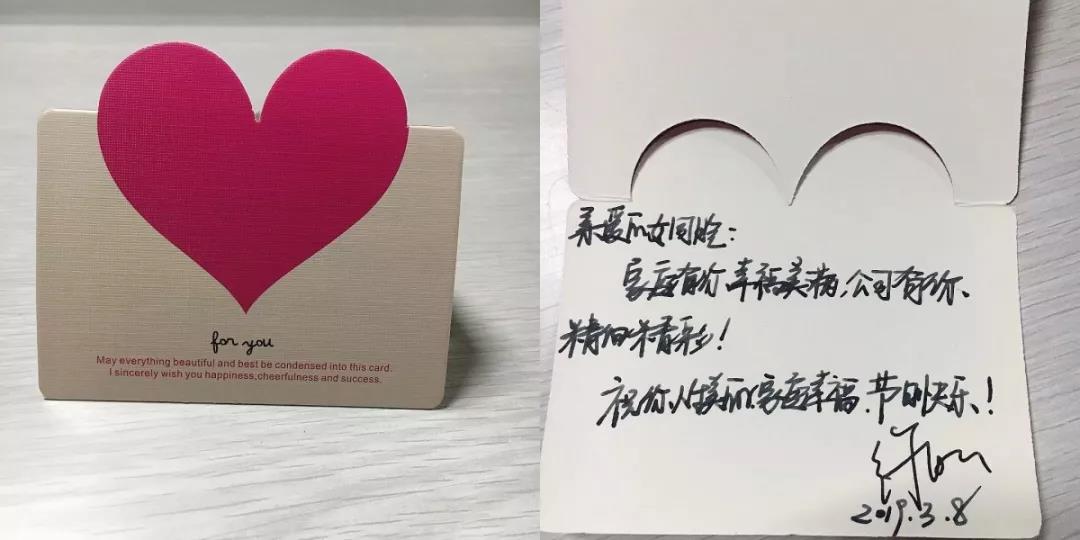 for you
May everything beautiful and best be condensed into this card.
I sincerely wish you happiness,cheerfulness and success.
亲爱的女同胞:
家庭有你幸福美满,公司有你、
精细精彩!
祝你人美丽、家庭幸福、节日快乐!
2019.3.8